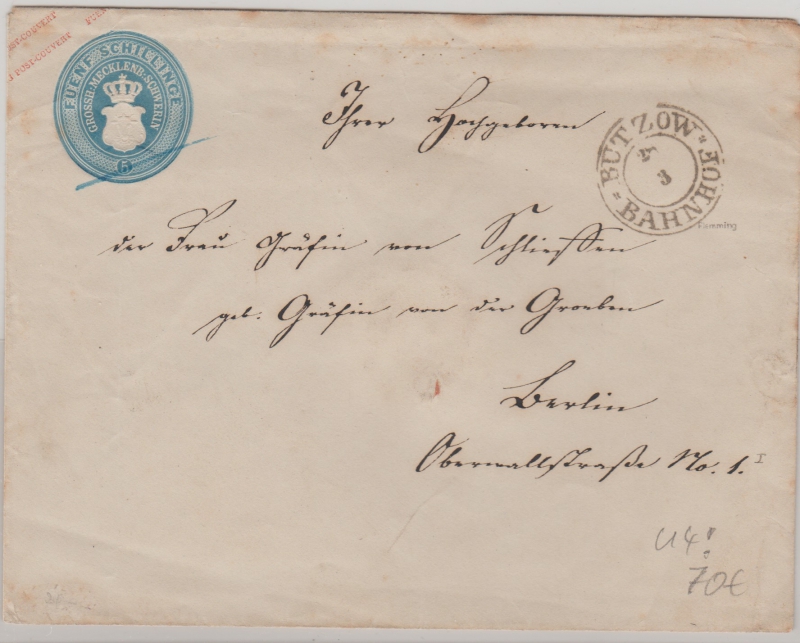 POST-COUVERT
POST-COUVERT
FUENF SCHILLINGE
GROSSH: MECKLENB: SCHWERIN
5
Ihrer Hochgeboren
BUTZOW
BAHNHOF
4
3
Flemming
der Frau Gräfin von Schlieffen
geb. Gräfin von der Groeben
Berlin
Oberwallstraße No. 1. I
U4!
70€